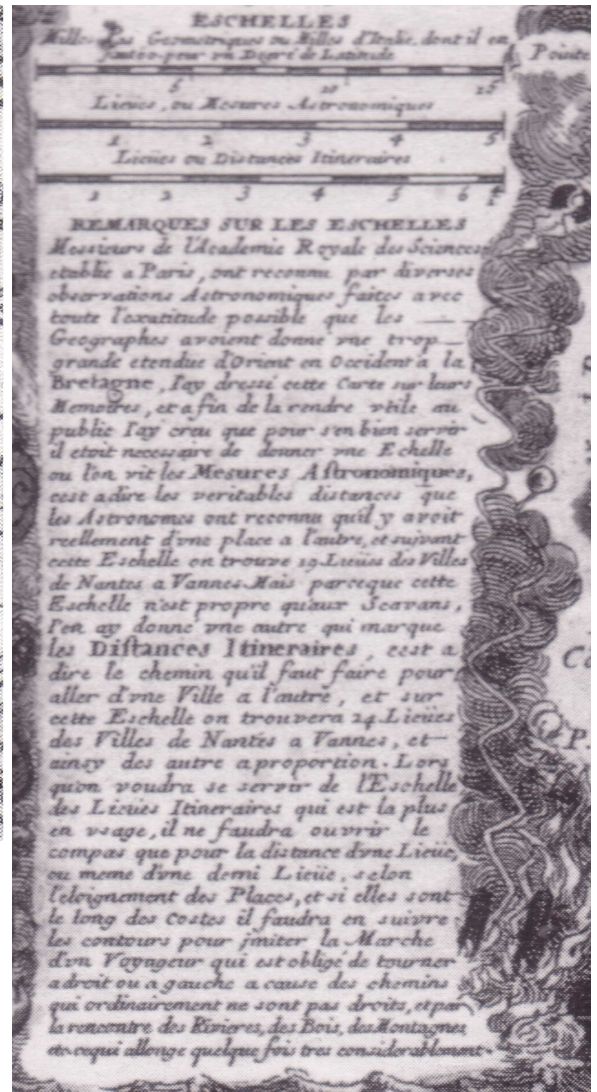 ESCHELLES
Milles pas Geometriques ou Milles d'Italie, dont il en
faut 60 pour vn Degré de Latitude
5 10 15
Lieües, ou Mesures Astronomiques
1 2 3 4 5
Lieües ou Distances Itineraires
1 2 3 4 5 6
REMARQUES SUR LES ESCHELLES
Messieurs de l'Academie Royale des Sciences
etablie a Paris, ont reconnu par diverses
observations Astronomiques faites avec
toute l'exatitude possible que les
Geographes avoient donne vne trop
grande etendue d'Orient en Occident a la
Bretagne, J'ay dressé cette Carte sur leurs
Memoires, et a fin de la rendre vtile au
public J'ay creu que pour s'en bien servir
il etoit necessaire de donner vne Echelle
ou l'on vit les Mesures Astronomiques,
cest a dire les veritables distances que
les Astronomes ont reconnu qu'il y avoit
reellement d'vne place a l'autre, et suivant
cette Eschelle on trouve 19 Lieües des Villes
de Nantes a Vannes. Mais parceque cette
Eschelle n'est propre qu'aux Scavans,
J'en ay donné vne autre qui marque
les Distances Itineraires, cest a
dire le chemin qu'il faut faire pour
aller d'vne Ville a l'autre, et sur
cette Eschelle on trouvera 24 Lieües
des Villes de Nantes a Vannes, et
ainsy des autre a proportion. Lors
qu'on voudra se servir de l'Eschelle
des Lieües Itineraires qui est la plus
en vsage, il ne faudra ouvrir le
compas que pour la distance d'vne Lieüe,
ou meme d'vne demi Lieüe, selon
l'eloignement des Places, et si elles sont
le long des Costes il faudra en suivre
les contours pour jmiter la Marche
d'vn Voyageur qui est obligé de tourner
a droit ou a gauche a cause des chemins
qui ordinairement ne sont pas droits, et par
la rencontre des Rivieres, des Bois, des Montagnes
etc. ce qui allonge quelque fois tres considerablement.
Pointe
P.